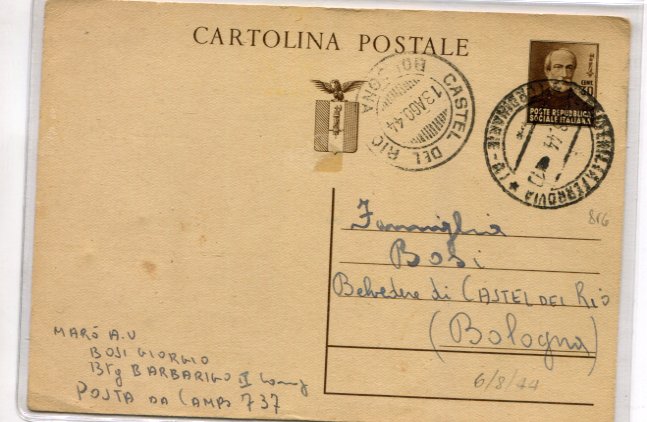 CARTOLINA POSTALE
CENT. 30
POSTE REPUBBLICA
SOCIALE ITALIANA
CASTEL DEL RIO
BOLOGNA
13 AGO 44
FERROVIA
44
Famiglia
Bosi
Belvedere di CASTEL DEL RIO
(Bologna)
816
6/8/44
MARÒ A.U
BOSI GIORGIO
Btg BARBARIGO II
POSTA DA CAMPO 737